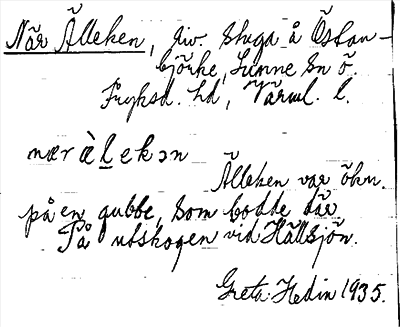 När Älleken, riv. stuga å Östan-
björke, Sunne sn ö.
Fryksd. hd, Värml. l.
nær àḷekɔn
Älleken var öknn.
på en gubbe, som bodde där
På utskogen vid Hällsjön.
Greta Hedin 1935.